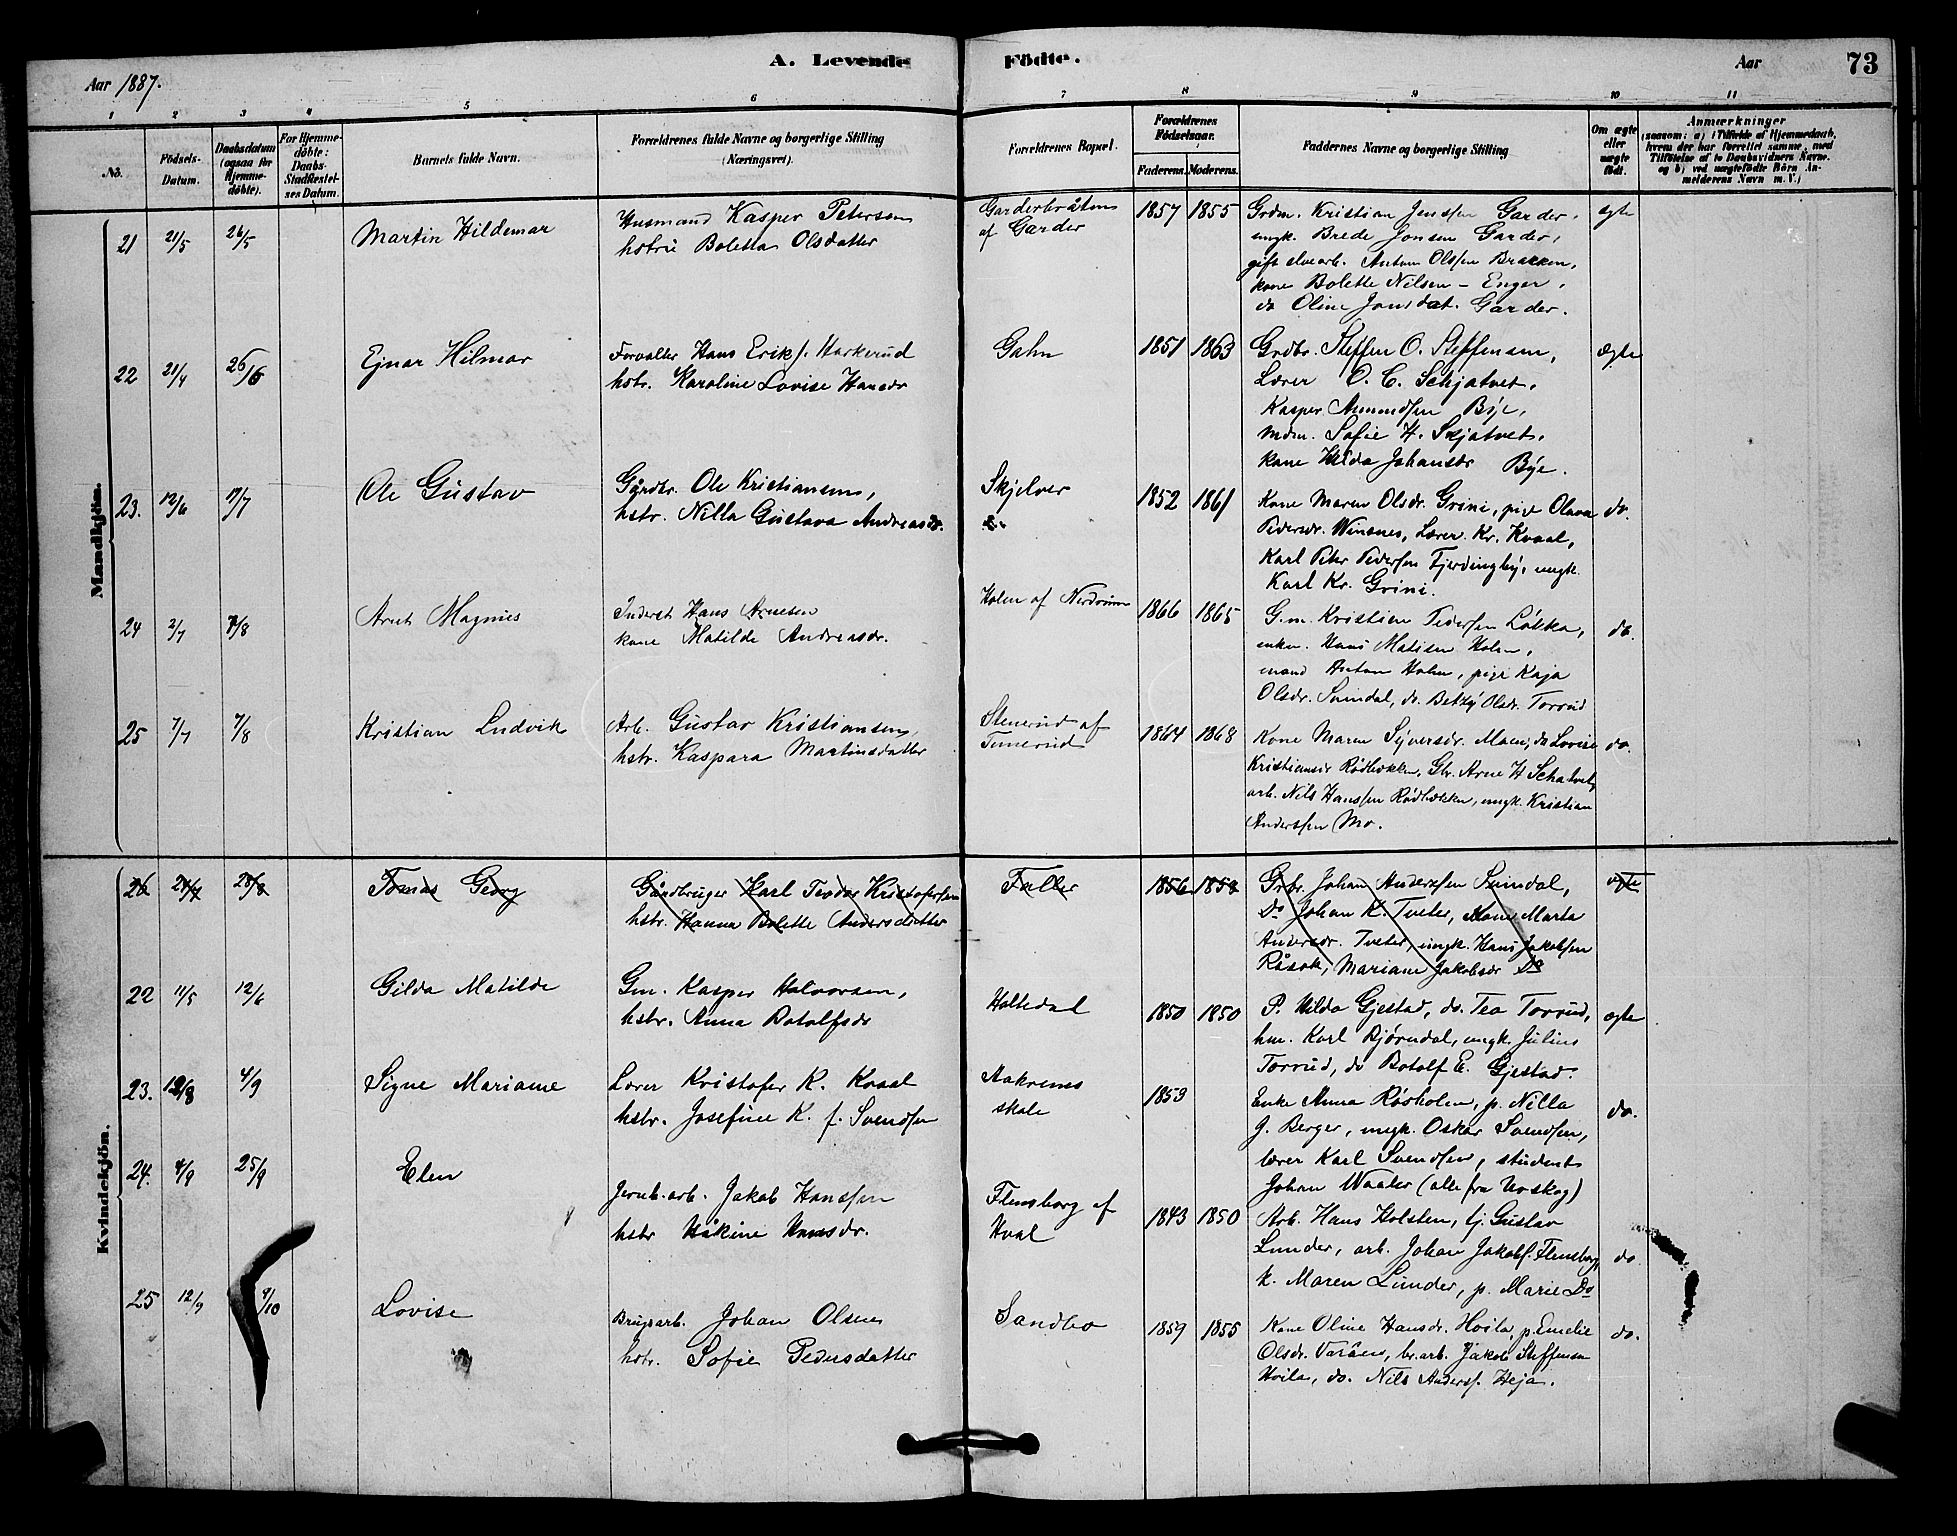 Aar 1887.
A. Levende
Födte.
Aar
73
1 2 3 4 5 6 7 8 9 10 11
No.
Födsels-
Datum.
Daabsdatum
(ogsaa for
Hjemme-
döbte).
For Hjemme-
döbte:
Daabs
Stadfæstel-
ses Datum.
Barnets fulde Navn.
Forældrenes fulde Navne og borgerlige Stilling
(Næringsvei).
Forældrenes Bopæl.
Forældrenes
Födselsaar.
Faderens. Moderens.
Faddernes Navne og borgerlige Stilling
Om ægte
eller
uægte
født.
Anmærkninger
(saasom: a) i Tilfælde af Hjemmedaab,
hvem der har forrettet samme, med
Tilföielse af to Daabsvidners Navne.
og b) ved uægtefödte Börn An-
melderens Navn m. V.)
Mandkjön.
21 21/5 26/5 Martin Hildemar
Husmand Kasper Petersen
hstru Boletta Olsdatter
Garderbråten
af Garder
1857 1855
Grdm. Kristian Jenssen Garder,
ungk. Brede Jonsen Garder,
gift elvearb. Anton Olssen Brækken,
kone Bolette Nilsen - Enger,
do Oline Jonsdat. Garder.
ægte
22 21/4 26/6 Ejnar Hilmar
Forvalter Hans Eriks. Harkerud
hstr. Karoline Lovise Hansdr
Gahn
1851 1863
Grdbr. Steffen O. Steffensen,
Lærer O. C. Schjatvet,
Kasper Amundsen Bye,
mdm. Sofie H. Skjatvet,
kone Hilda Johansdr Bye.
ægte
23. 12/6 17/7 Ole Gustav
Gårdbr. Ole Kristiansen,
hstr. Nilla Gustava Andreasdr.
Skjelver
1852 1861
Kone Maren Olsdr. Grini, pige Olava
Pedersdr. Winsnes, Lærer Kr. Kvaal,
Karl Peter Pedersen Fjerdingby, ungk.
Karl Kr. Grini.
do.
24 2/7 7/8 Arnt Magnus
Inderst Hans Arnesen
kone Matilde Andreasdr.
Holm af Nerdrum
1866 1865
G.m. Kristian Pedersen Løkka,
enkem. Hans Matisen Holm,
mand Anton Holm, pige Kaja
Olsdr. Svindal, do. Betzy Olsdr. Torrud
do.
25 7/7 7/8 Kristian Ludvik
Arb. Gustav Kristiansen,
hstr. Kaspara Martinsdatter
Stenerud af
Tomerud
1864 1868
Kone Maren Syversdr. Moen, do Lovise
Kristiansdr Rødbækken, Gbr. Arne H Schatvet,
arb. Nils Hanssen Rødbækken, ungk. Kristian
Anderssen Mo.
do.
Kvindekjön.
26 28/8 Tomas Georg
Gårdbruger Karl Teodor Kristofersen
hstr. Hanna Bolette Andersdatter
Faller
1856 1858
Grbr. Johan Anderssen Svindal,
Do Johan K. Tveter, Kone Marta
Andersdr. Tveter, ungk. Hans Jakobsen
Råsok, Mariane Jakobsdr Do
ægte
22 11/5 12/6 Gilda Matilde
Gm. Kasper Halvorsen,
hstr. Anna Botolfsdr
Holtedal
1850 1850
P. Hilda Gjestad, do. Tea Torrud,
hm. Karl Bjørndal, ungk. Julius
Torrud, do Botolf E. Gjestad.
ægte
23. 4/9 Signe Mariane
Lærer Kristofer K. Kvaal
hstr. Josefine K. f. Svendsen
Aakrenes
skole
1853
Enke Anna Røsholm, p. Nilla
J. Berger, ungk. Oskar Svendsen,
lærer Karl Svendsen, student
Johan Waaler (alle fra Urskog)
do.
24. 4/9 25/9 Elen
Jernb.arb. Jakob Hanssen
hstr Håkine Hansdr.
Flensborg af
Hval
1843 1850
Arb. Hans Holsten, tj. Gustav
Lunder, arb. Johan Jakobs. Flensborg,
k. Maren Lunder, p. Marie Do
do
25 12/9 9/10 Lovise
Brugsarb. Johan Olsen
hstr. Sofie Pedersdatter
Sandbo
1859 1855
Kone Oline Hansdr. Hvila, p. Emelie
Olsdr. Varåen, br.arb. Jakob Steffensen
Hvila, do. Nils Anders. Heja.
do.